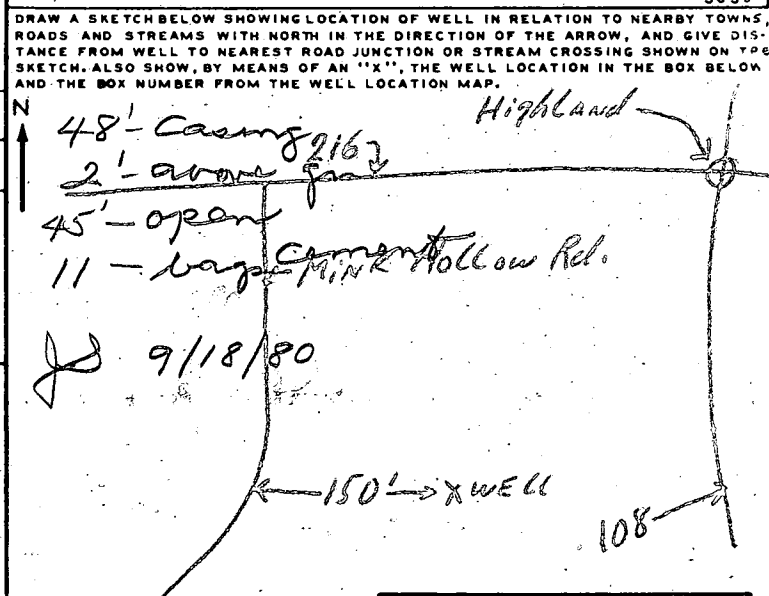 DRAW A SKETCH BELOW SHOWING LOCATION OF WELL IN RELATION TO NEARBY TOWNS,
ROADS AND STREAMS WITH NORTH IN THE DIRECTION OF THE ARROW, AND GIVE DIS-
TANCE FROM WELL TO NEAREST ROAD JUNCTION OR STREAM CROSSING SHOWN ON
SKETCH. ALSO SHOW, BY MEANS OF AN "X", THE WELL LOCATION IN THE BOX BELOW
AND THE BOX NUMBER FROM THE WELL LOCATION MAP.
N
Highland
48'- Casing
216
2'- above
45'- open
11 - bags cement
Mink Hollow Rd.
JS 9/18/80
150' X WELL
108